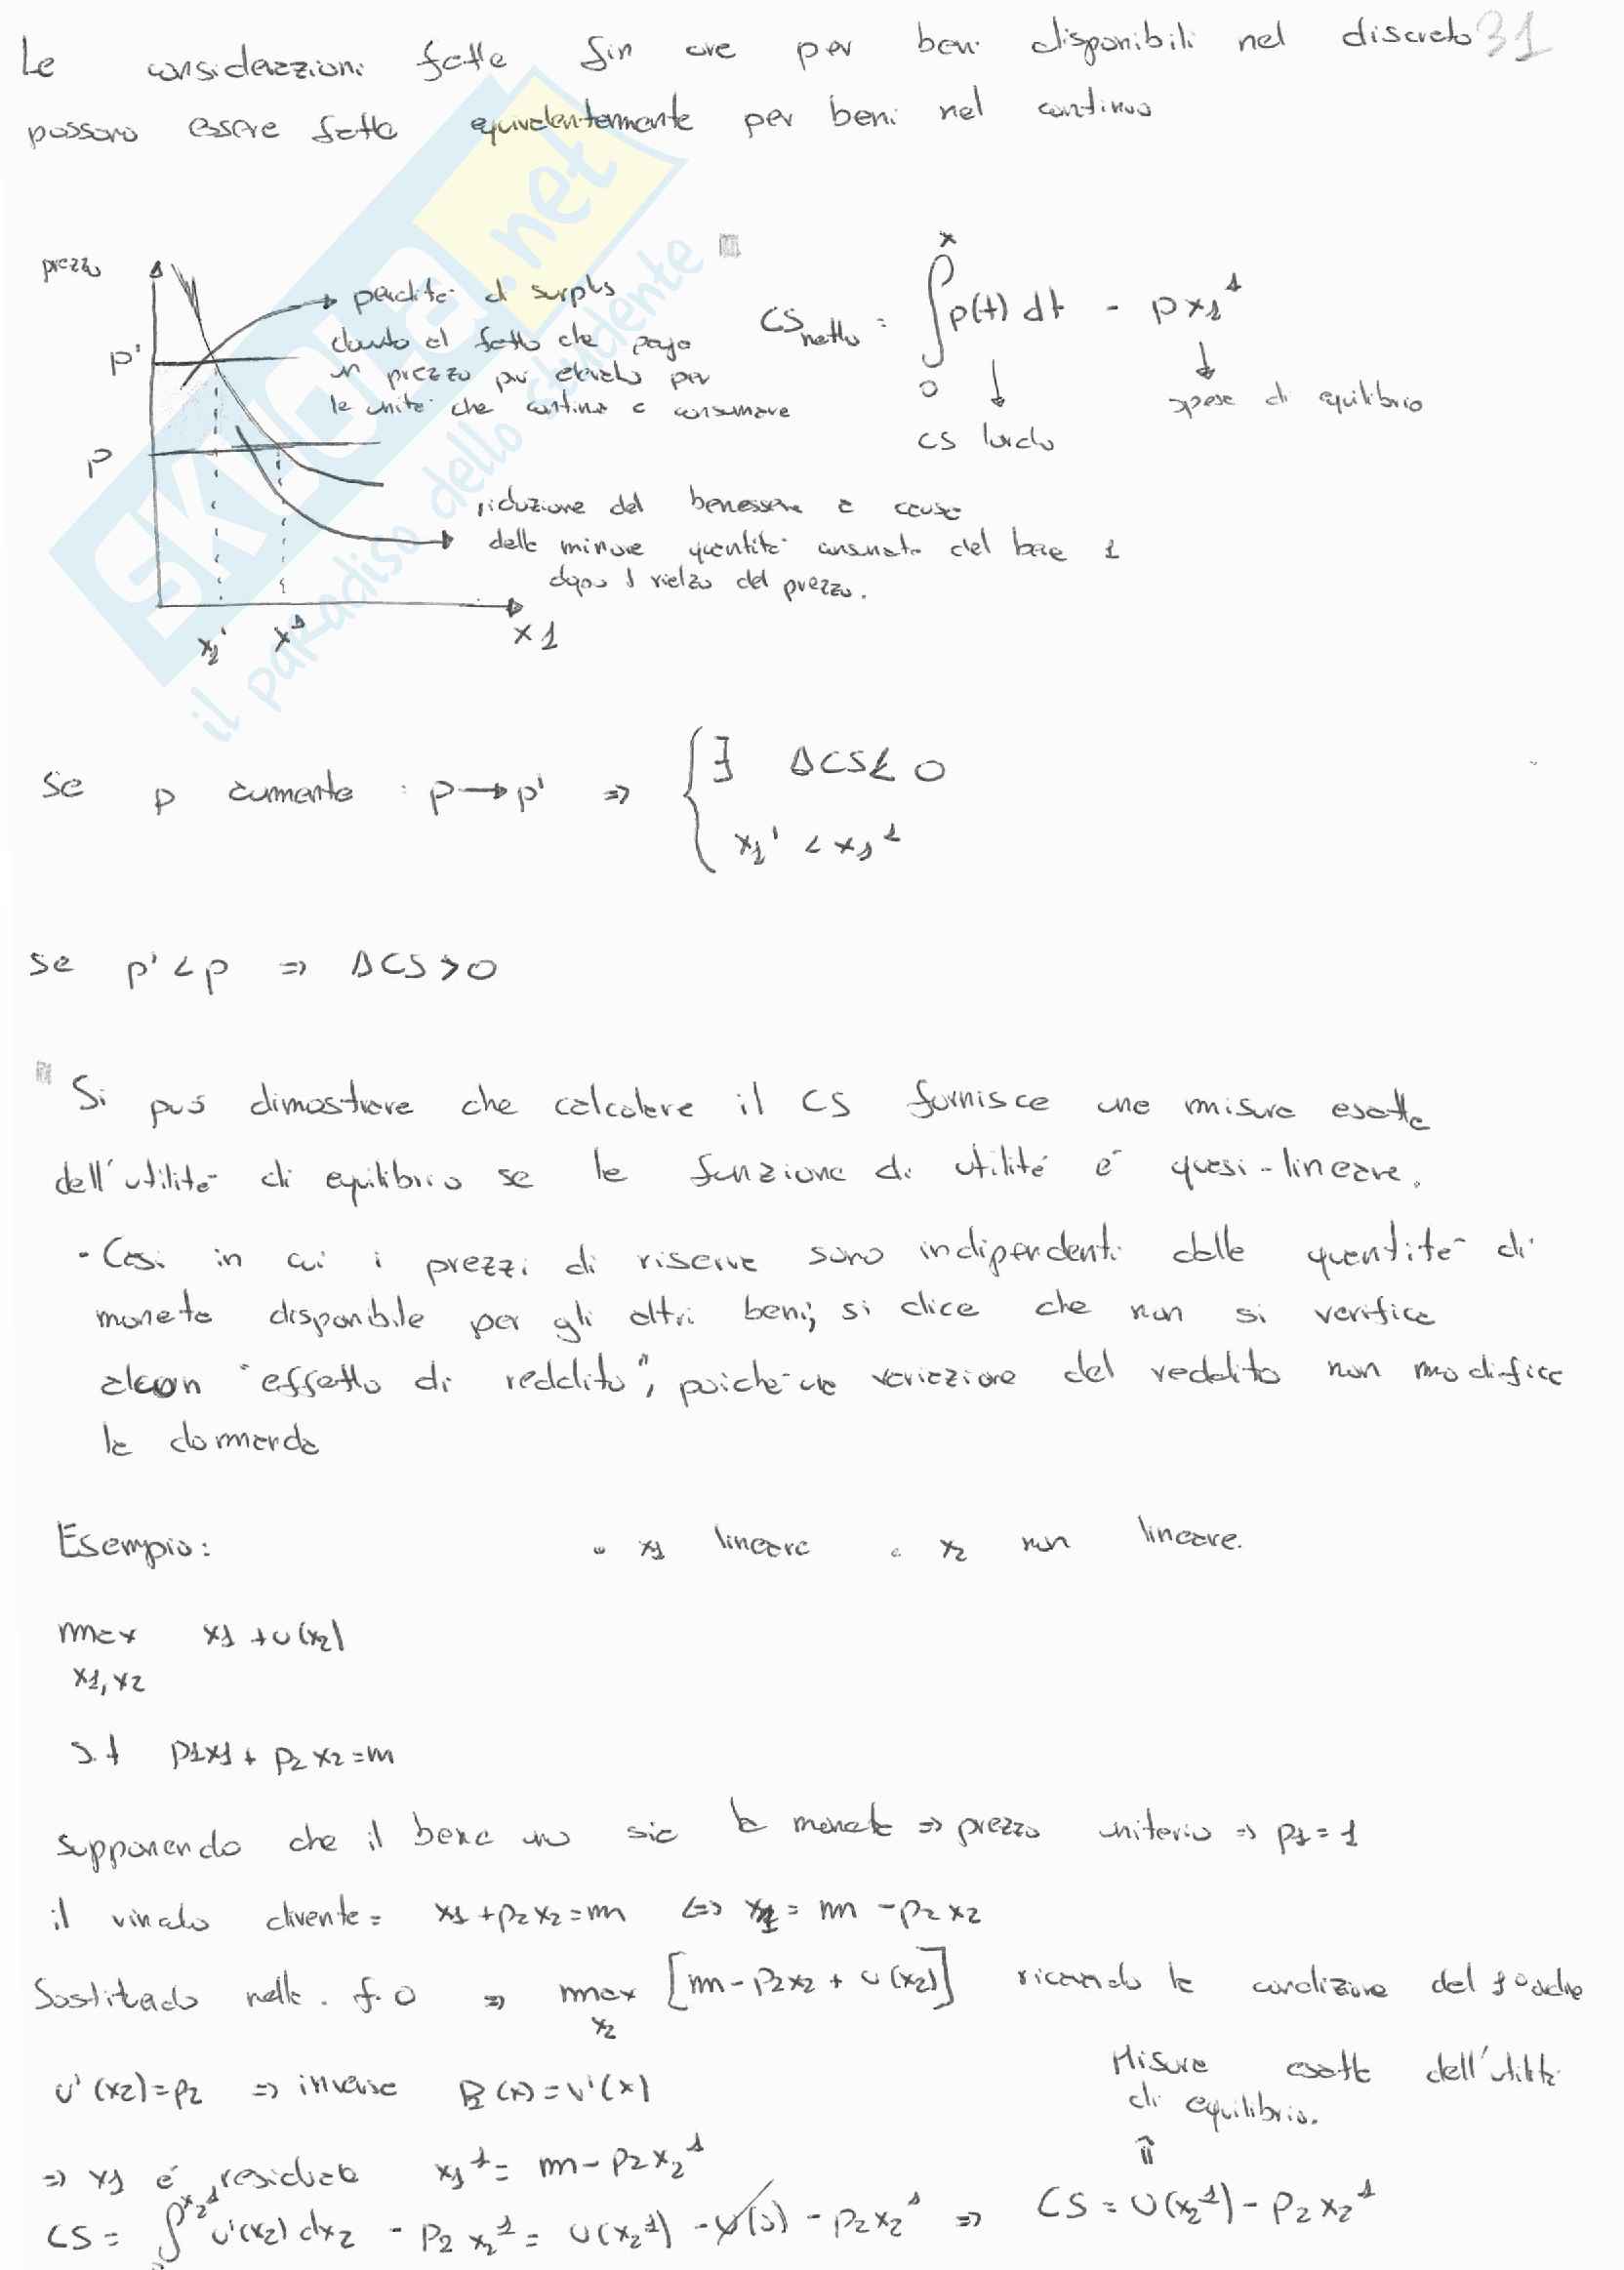 Le considerazioni fatte fin ora per beni disponibili nel discreto 31
possono essere fatte equivalentemente per beni nel continuo
prezzo
perdita di surplus
dovuta al fatto che pago
un prezzo più elevato per
le unità che continuo a consumare
p'
p
CS netto = ∫₀ˣ p(t) dt - p x1¹
spesa di equilibrio
CS lordo
riduzione del benessere a causa
della minore quantità consumata del bene 1
dopo il rialzo del prezzo.
x1' x¹ x1
Se p aumenta : p → p' ⇒ { ∃ ΔCS ≤ 0
x1' < x1¹
Se p' < p ⇒ ΔCS > 0
Si può dimostrare che calcolare il CS fornisce una misura esatta
dell'utilità di equilibrio se la funzione di utilità è quasi-lineare.
- Casi in cui i prezzi di riserva sono indipendenti dalla quantità di
moneta disponibile per gli altri beni; si dice che non si verifica
alcun "effetto di reddito", poiché una variazione del reddito non modifica
la domanda
Esempio: • x1 lineare • x2 non lineare.
max x1 + u(x2)
x1, x2
s.t p1x1 + p2x2 = m
supponendo che il bene uno sia la moneta ⇒ prezzo unitario ⇒ p1 = 1
il vincolo diventa = x1 + p2x2 = m ⇔ x1 = m - p2x2
Sostituendo nella f.o ⇒ max [m - p2x2 + u(x2)] ricavando la condizione del 1° ordine
x2
u'(x2) = p2 ⇒ inversa P2(x) = u'(x)
Misura esatta dell'utilità
di equilibrio.
⇑
⇒ x1 è residuale x1¹ = m - p2x2¹
CS = ∫₀^x2¹ u'(x2) dx2 - p2 x2¹ = u(x2¹) - u(0) - p2x2¹ ⇒ CS = u(x2¹) - p2x2¹
SKUOLA.net
il paradiso dello studente